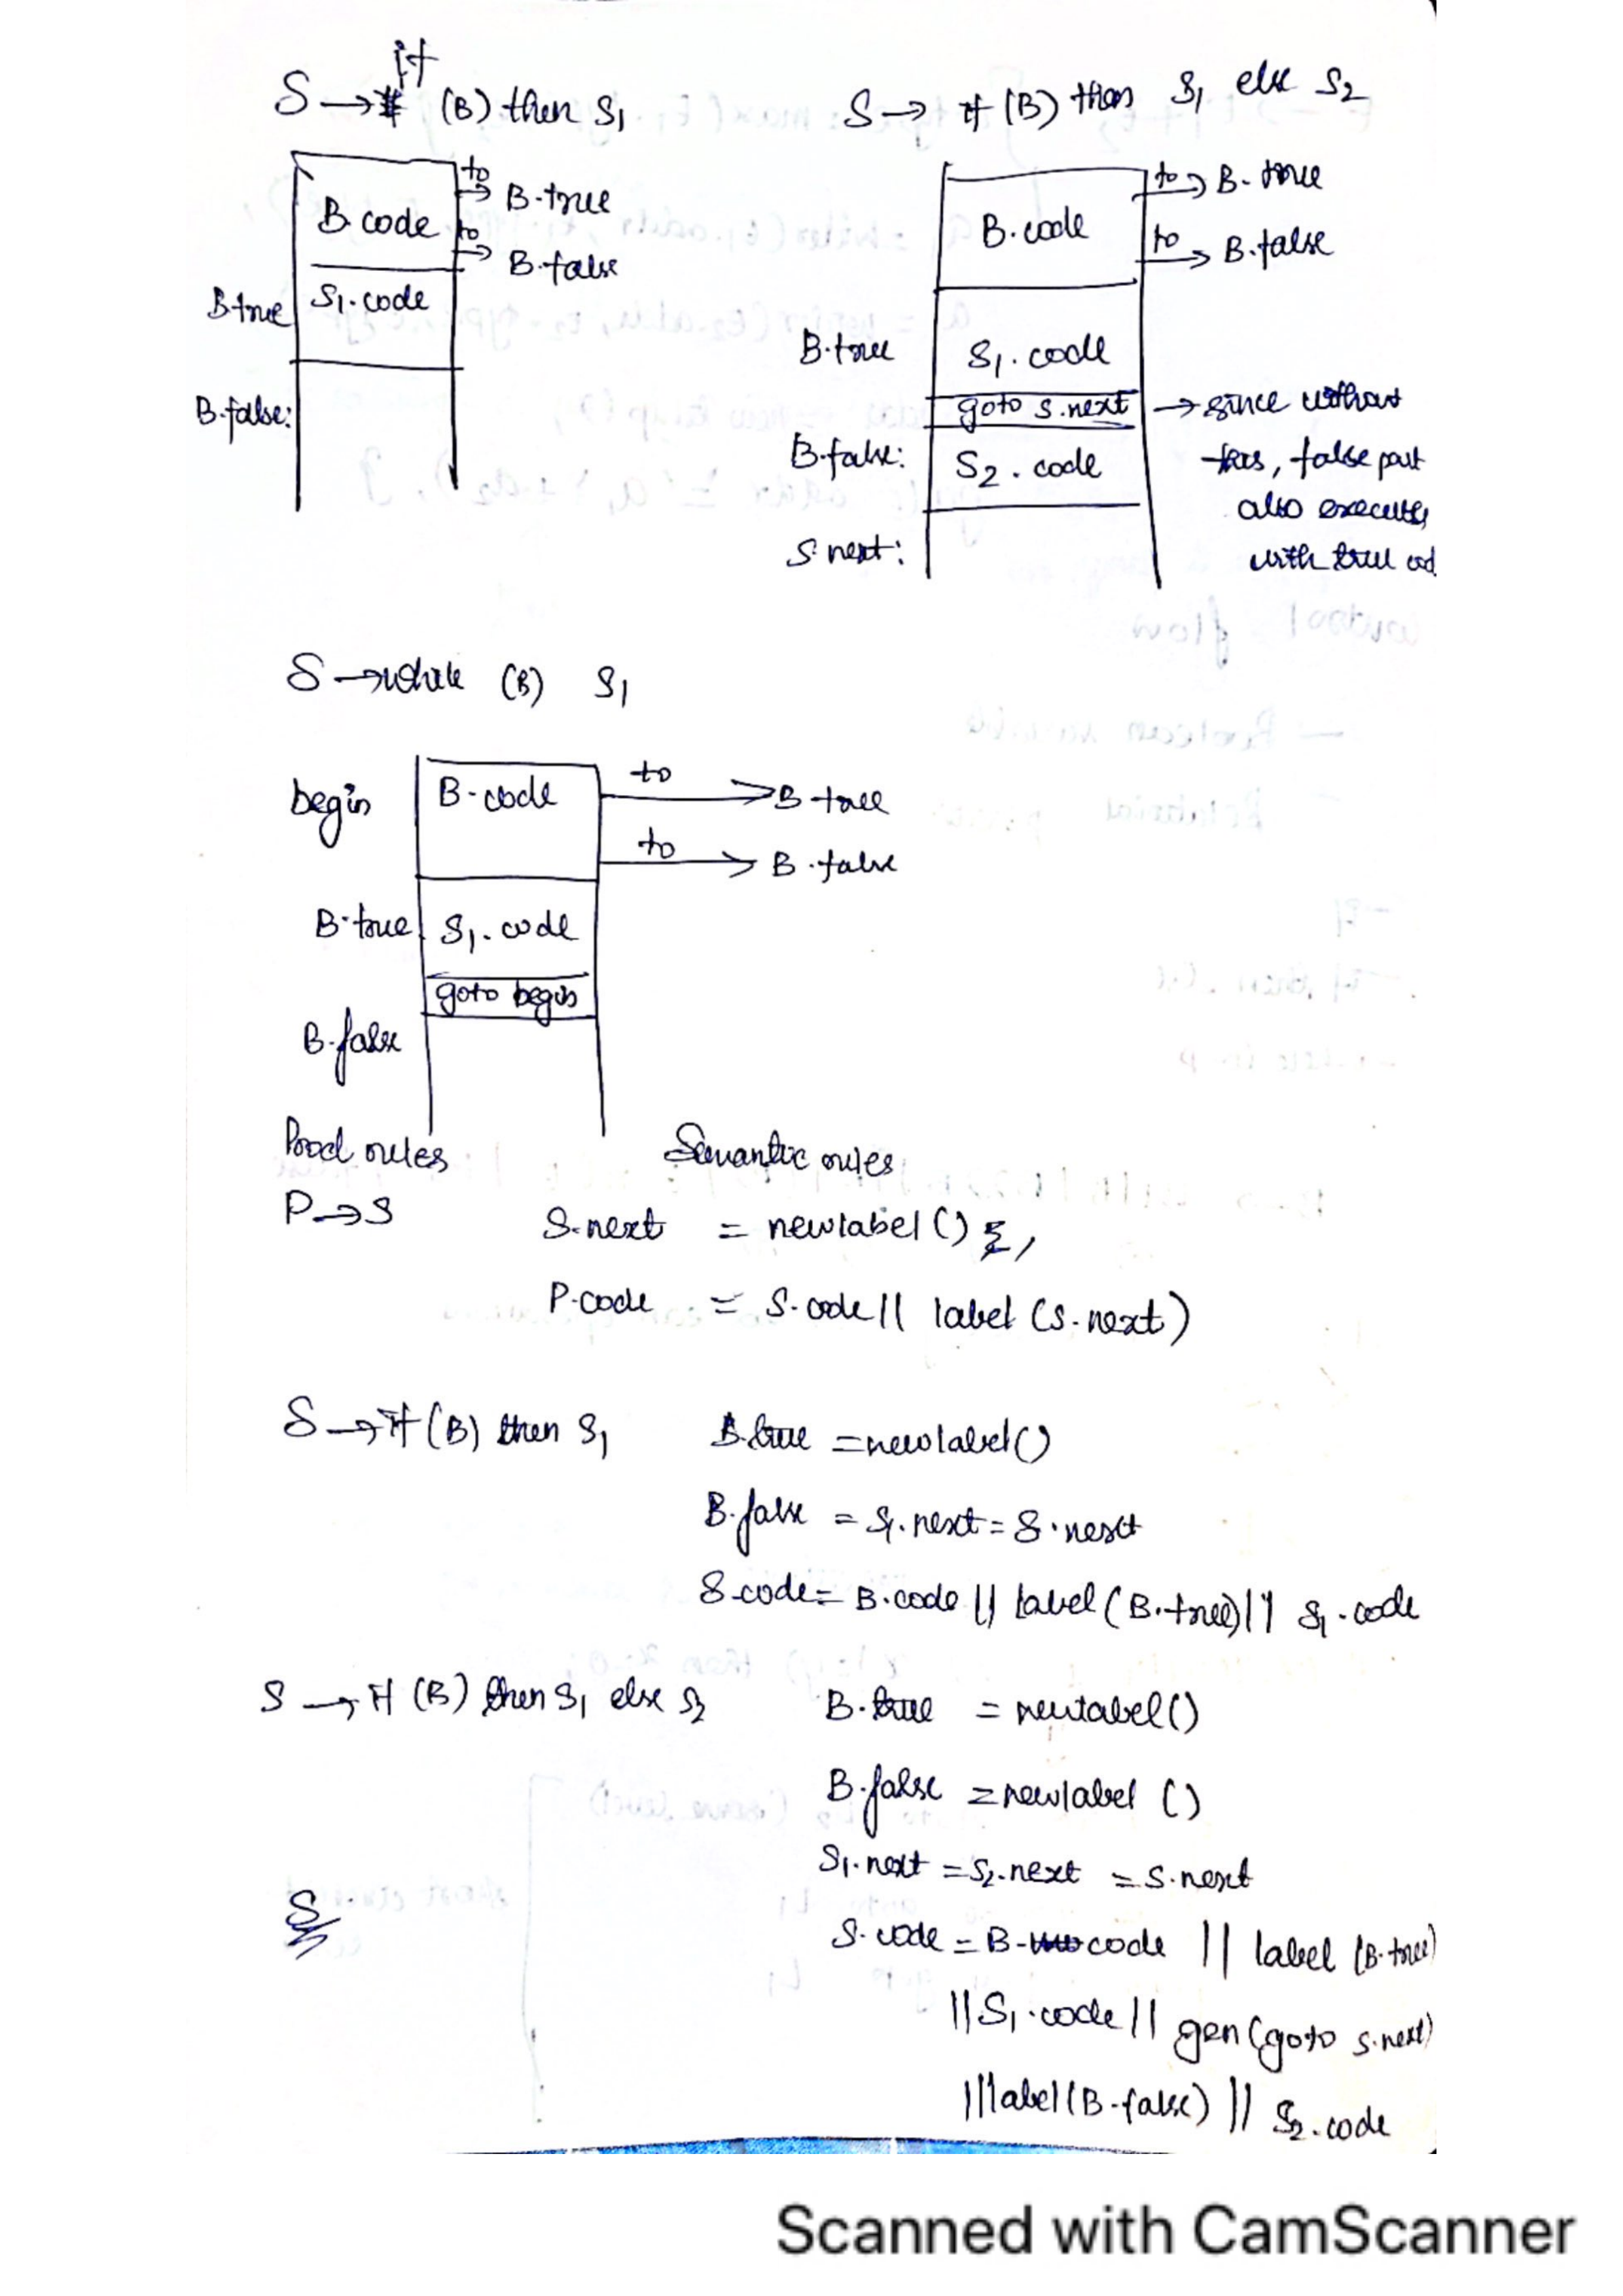 S → if (B) then S1
to
B.code → B.true
to
→ B.false
B.true S1.code
B.false:
S → if (B) then S1 else S2
to → B.true
B.code
to → B.false
B.true S1.code
goto S.next → since without
B.false: S2.code this, false part
also executes
S.next: with true cod
S → while (B) S1
begin B.code to → B.true
to → B.false
B.true S1.code
goto begin
B.false
Prod rules Semantic rules
P → S S.next = newlabel()
P.code = S.code || label (S.next)
S → if (B) then S1 B.true = newlabel()
B.false = S1.next = S.next
S.code = B.code || label (B.true) || S1.code
S → if (B) then S1 else S2 B.true = newlabel()
B.false = newlabel ()
S1.next = S2.next = S.next
S S.code = B.code || label (B.true)
|| S1.code || gen(goto S.next)
|| label(B.false) || S2.code
Scanned with CamScanner